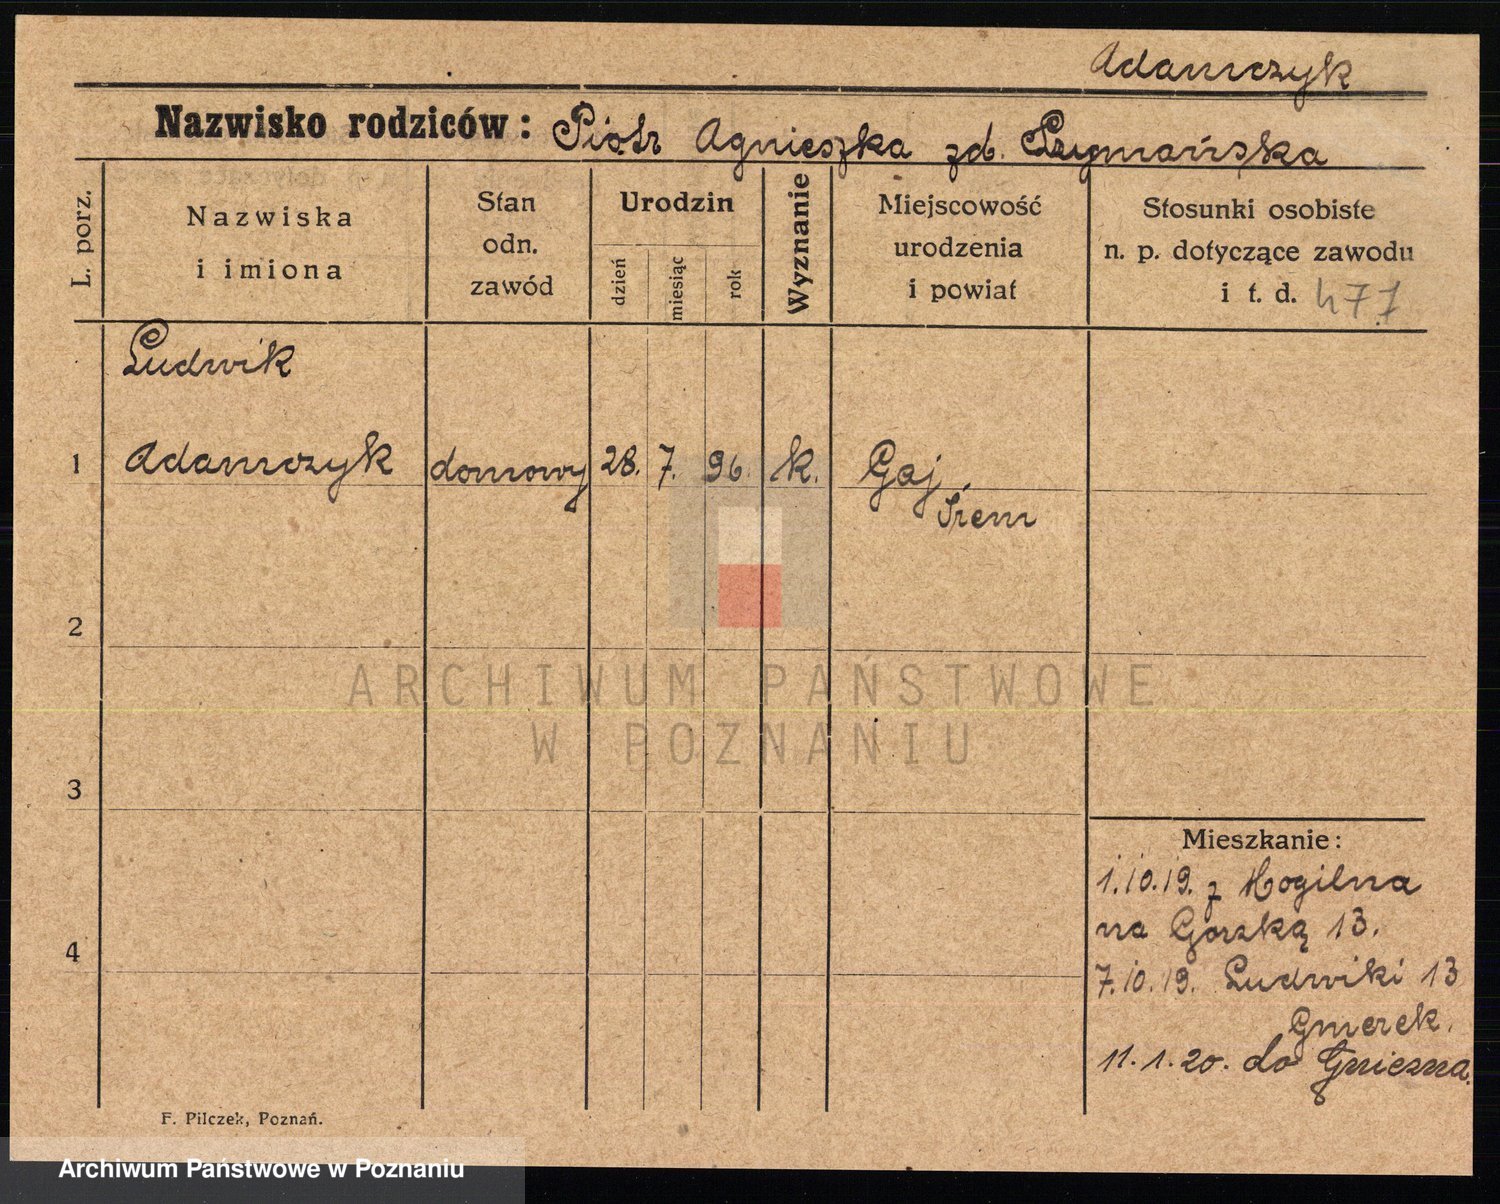 Adamczyk
Nazwisko rodziców: Piotr Agnieszka zd. Szymańska
L. porz.
Nazwiska
i imiona
Stan
odn.
zawód
Urodzin
dzień
miesiąc
rok
Wyznanie
Miejscowość
urodzenia
i powiat
Stosunki osobiste
n. p. dotyczące zawodu
i t. d. 477
Ludwik
1 Adamczyk domowy 28. 7. 96. k. Gaj
Śrem
2
ARCHIWUM PAŃSTWOWE
W POZNANIU
3
Mieszkanie:
1.10.19. z Mogilna
na Gorzką 13.
4
7.10.19. Ludwiki 13
Gmerek.
11.1.20. do Gniezna.
F. Pilczek, Poznań.
Archiwum Państwowe w Poznaniu